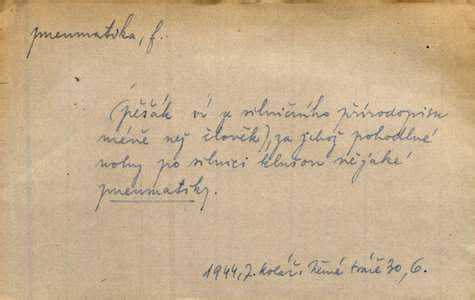 pneumatika, f.
(pěšák ví ze silničního přírodopisu
méně než člověk), za jehož pohodlné
nohy po silnici klušou nějaké
pneumatiky.
1944, J. Kolář. 30, 6.